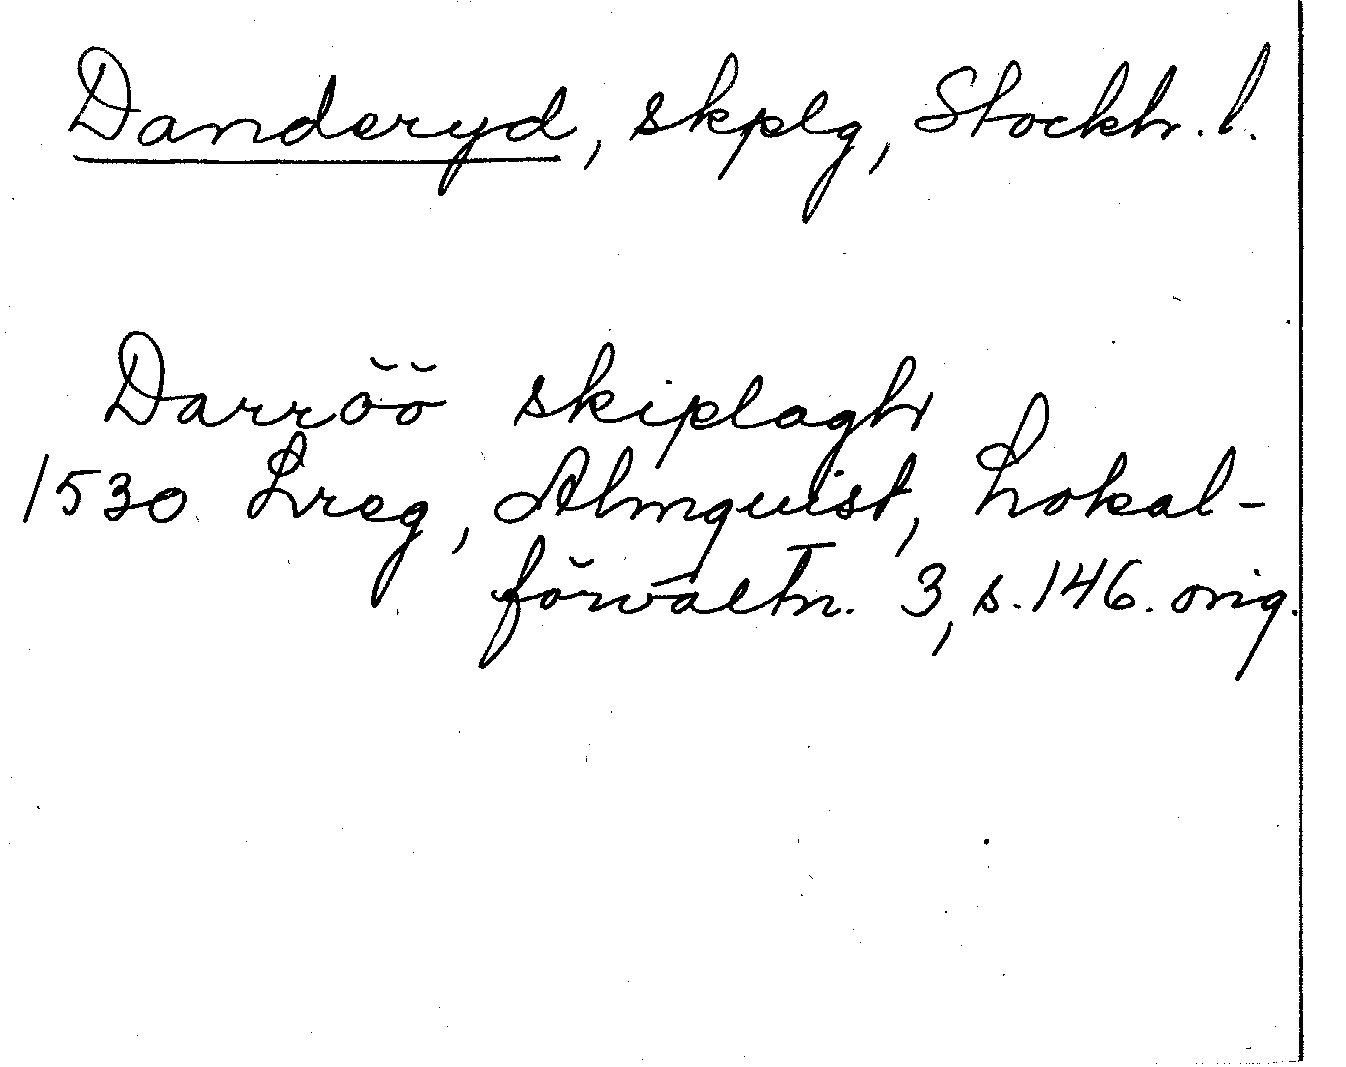 Danderyd, skplg, Stockh. l.
Darröö skiplagh
1530 Lreg, Almquist, Lokal-
förvaltn. 3, s. 146. orig.